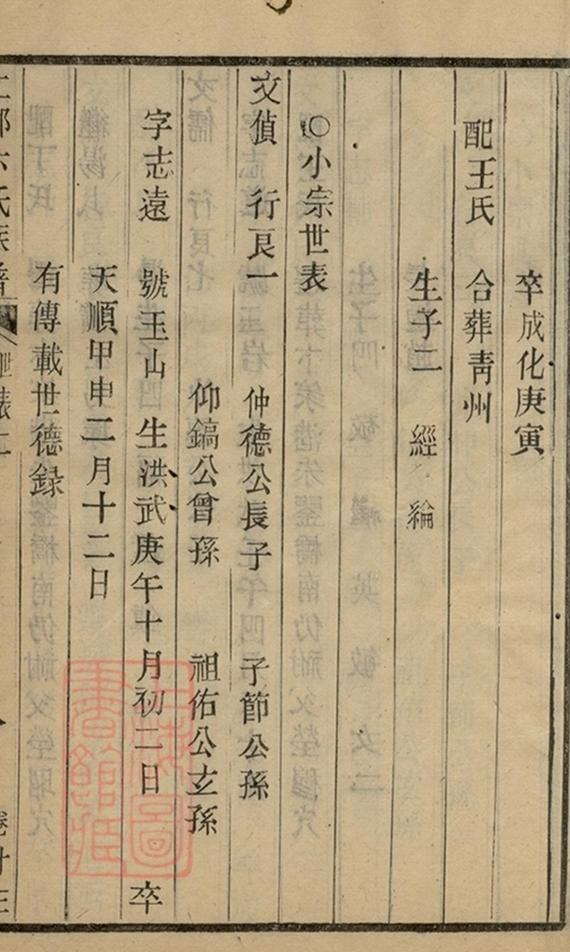 卒成化庚寅
配王氏 合葬靑州
生子二 經 綸
〇小宗世表
文偵 行良一 仲德公長子 子節公孫
仰鎬公曾孫 祖佑公玄孫
字志遠 號玉山 生洪武庚午十月初二日 卒
天順甲申三月十二日
有傳載世德録